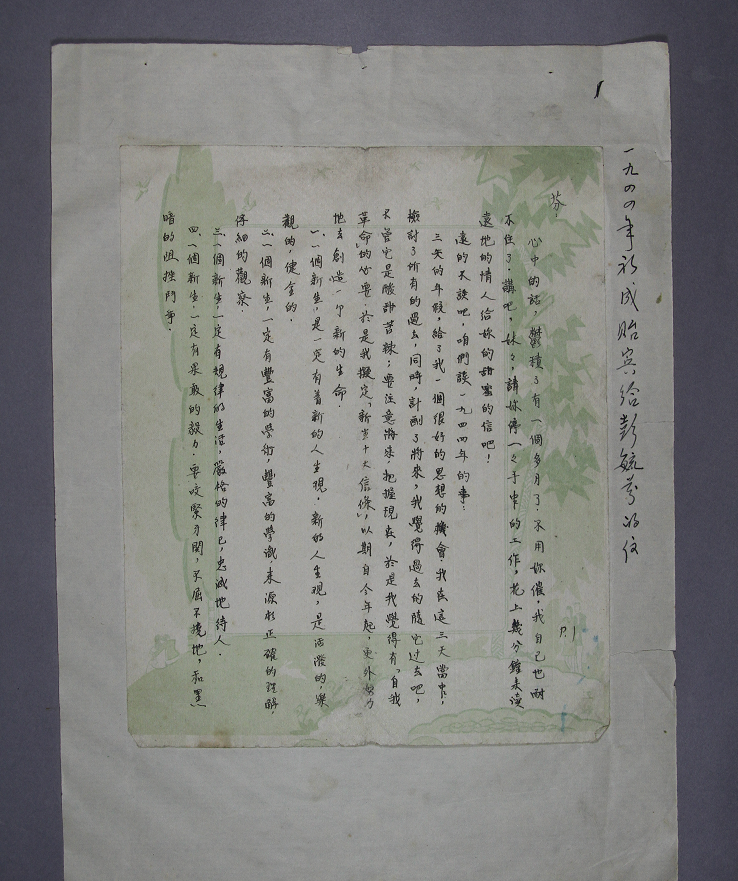 一九四四年祁成貽宾給彭毓芬的信
P.1
芬：
心中的話，鬱積了有一個多月了．不用妳催，我自己也耐
不住了．講吧，妹々，請妳停一々手中的工作，花上幾分鐘来讀
遠地的情人給妳的甜蜜的信吧！
遠的不談吧，咱們談一九四四年的事：
三天的年假，給了我一個很好的思想的機會．我在這三天當中，
檢討了所有的過去，同時，計劃了將來，我覺得過去的隨它过去吧，
不管它是酸甜苦辣；要注意將來，把握現在，於是我覺得有「自我
革命」的必要．於是我擬定「新生十大信條」，以期自今年起，更外努力
地去創造一個新的生命．
一、一個新生，是一定有着新的人生現．新的人生現，是活潑的，樂
觀的，健全的．
二、一個新生，一定有豐富的學術，豐富的學識，来源於正確的理解，
仔細的觀察
三、一個新生，一定有規律的生活，嚴格的律己，忠誠地待人．
四、一個新生，一定有果敢的毅力．要咬緊牙関，不屈不撓地，和黑
暗的阻挫鬥爭．